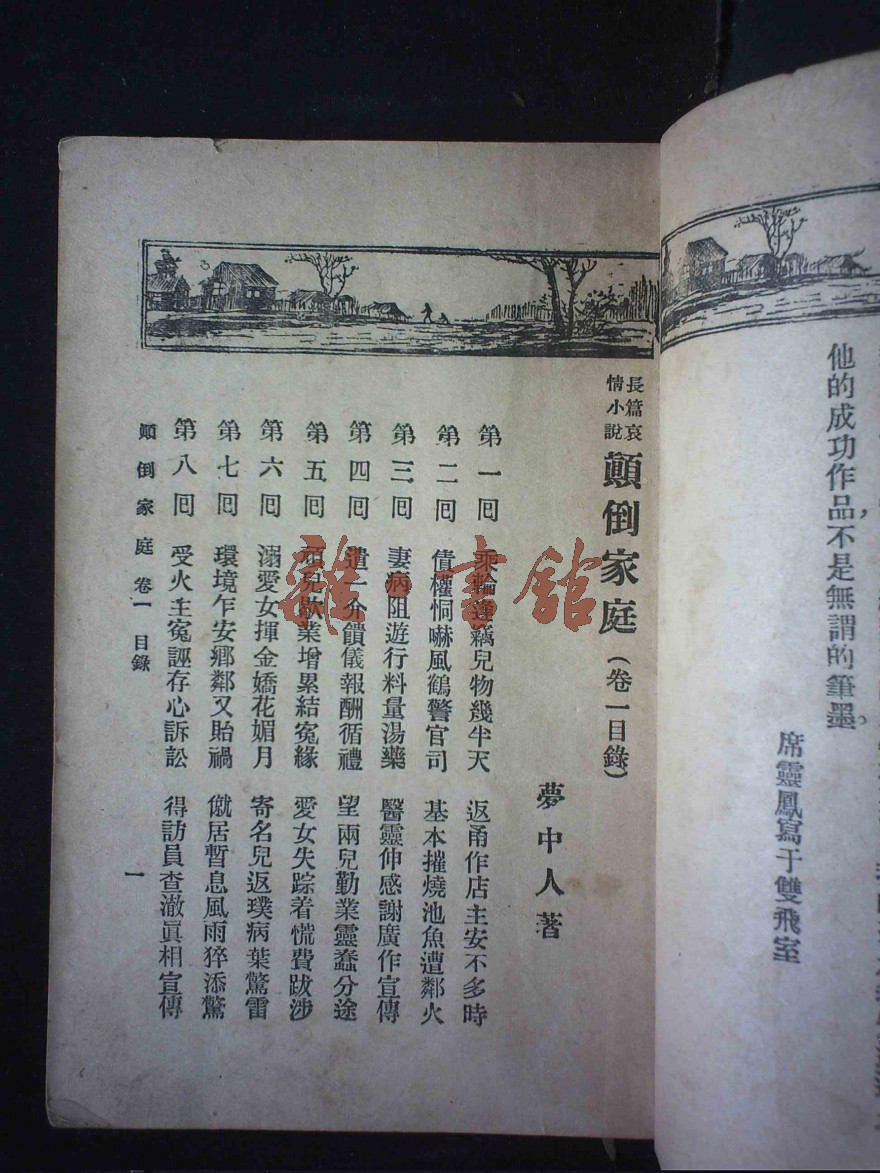 他的成功作品，不是無謂的筆墨。
席靈鳳寫于雙飛室
長篇哀情小說 顛倒家庭（卷一目錄）
夢中人著
第一回 乘輪 竊兒物幾半天 返甬作店主安不多時
第二回 債權恫嚇風鶴警官司 基本摧燒池魚遭鄰火
第三回 妻病阻遊行料量湯藥 醫靈仲感謝廣作宣傳
第四回 遣一介饋儀報酬循禮 望兩兒勤業靈蠢分途
第五回 頑兒歇業增累結寃緣 愛女失踪着慌費跋涉
第六回 溺愛女揮金嬌花媚月 寄名兒返璞病葉驚雷
第七回 環境乍安鄉鄰又貽禍 僦居暫息風雨猝添驚
第八回 受火主寃誣存心訴訟 得訪員查澈眞相宣傳
顛倒家庭 卷一 目錄
一
雜·書館